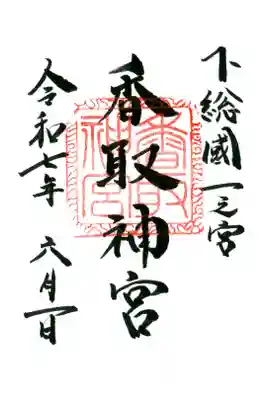 下総國一之宮
香取神宮
令和七年 六月一日